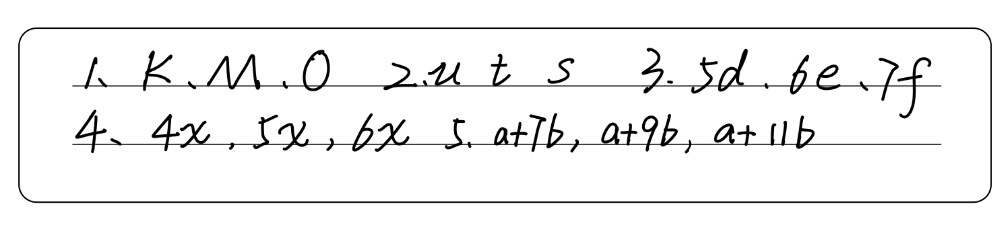 1、K、M.O 2.u t s 3.5d.6e、7f
4、4x,5x,6x 5.a+7b,a+9b,a+11b